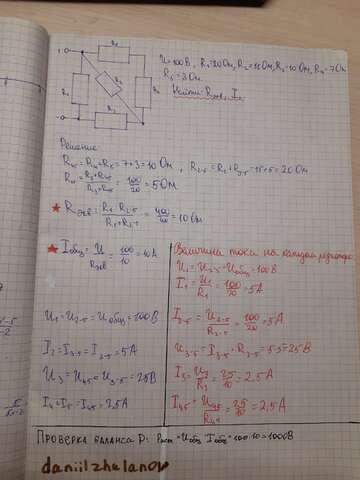 U=100В, R₁=20Ом, R₂=15Ом, R₃=10Ом, R₄=7Ом
R₅=3Ом.
Найти R экв, I
Решение
R₄₅=R₄+R₅=7+3=10 Ом, R₂₋₅=R₂+R₃₋₅=15+5=20Ом
= 100/20 = 5Ом
★ Rэкв = R₁·R₂₋₅/R₁+R₂₋₅ = = 10 Ом
★ Iобщ = U/Rэкв = 100/10 = 10А
Величины тока на каждом
U₁=U₂₋₅=Uобщ=100В
I₁ = U₁/R₁ = 100/20 = 5А
U₁=U₂₋₅=Uобщ=100В
I₂₋₅ = U₂₋₅/R₂₋₅ = 100/20 = 5А
I₂=I₃₋₅=I₂₋₅=5А
U₃₋₅=I₃₋₅·R₃₋₅=5·5=25В
U₃=U₄₅=U₃₋₅=25В
I₃ = U₃/R₃ = 25/10 = 2,5А
I₄=I₅=I₄₅=2,5А
I₄₅ = = 25/10 = 2,5А
Проверка баланса P: Pист=Uобщ·Iобщ=100·10=1000В
daniilzhelanov